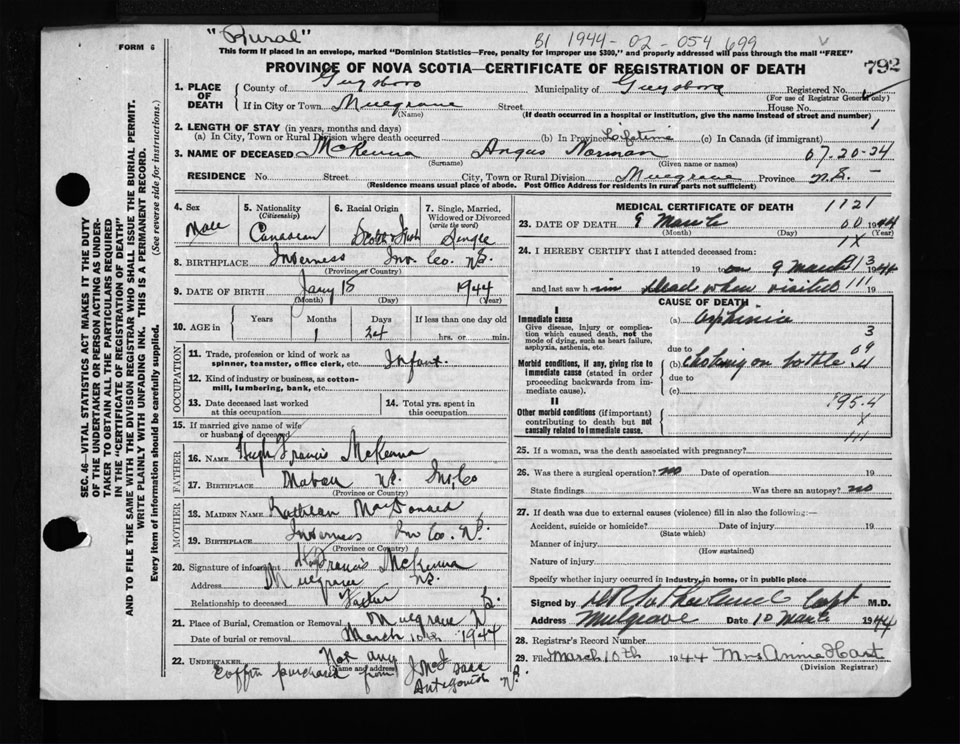 "Rural"
B1 1944-02-054699
FORM 6
This form if placed in an envelope, marked "Dominion Statistics—Free, penalty for improper use $300," and properly addressed will pass through the mail "FREE"
PROVINCE OF NOVA SCOTIA—CERTIFICATE OF REGISTRATION OF DEATH
792
1. PLACE OF DEATH
County of Guysboro Municipality of Guysboro Registered No.
(For use of Registrar General only)
If in City or Town Mulgrave Street House No.
(Name) (If death occurred in a hospital or institution, give the name instead of street and number)
2. LENGTH OF STAY (in years, months and days)
1
(a) In City, Town or Rural Division where death occurred (b) In Province Lifetime (c) In Canada (if immigrant)
3. NAME OF DECEASED McKenna Angus Norman 07-20-24
(Surname) (Given name or names)
RESIDENCE No. Street City, Town or Rural Division Mulgrave Province N.S.
(Residence means usual place of abode. Post Office Address for residents in rural parts not sufficient)
4. Sex
Male
5. Nationality (Citizenship)
Canadian
6. Racial Origin
Scotch & Irish
7. Single, Married, Widowed or Divorced (write the word)
Single
8. BIRTHPLACE Inverness Inv. Co. N.S.
(Province or Country)
9. DATE OF BIRTH Jany 15 1944
(Month) (Day) (Year)
10. AGE in
Years Months Days If less than one day old
1 24 hrs. or min.
OCCUPATION
11. Trade, profession or kind of work as spinner, teamster, office clerk, etc. Infant
12. Kind of industry or business, as cotton-mill, lumbering, bank, etc.
13. Date deceased last worked at this occupation
14. Total yrs. spent in this occupation
15. If married give name of wife or husband of deceased
FATHER
16. Name Hugh Francis McKenna
17. Birthplace Mabou N.S. Inv. Co
(Province or Country)
MOTHER
18. Maiden Name Kathleen MacDonald
19. Birthplace Inverness Inv Co. N.S.
(Province or Country)
20. Signature of informant H Francis McKenna
Address Mulgrave N.S.
Relationship to deceased Father
21. Place of Burial, Cremation or Removal Mulgrave N.S.
Date of burial or removal March 10th 1944
22. UNDERTAKER Not any
(Name and address)
Coffin purchased from J McIsaac
Antigonish N.S.
MEDICAL CERTIFICATE OF DEATH
1121
23. DATE OF DEATH 9 March 1944
(Month) (Day) (Year)
24. I HEREBY CERTIFY that I attended deceased from:
19 to on 9 March 1944
and last saw him dead when visited 19
CAUSE OF DEATH
I
Immediate cause
Give disease, injury or complication which caused death, not the mode of dying, such as heart failure, asphyxia, asthenia, etc.
(a)
due to
Morbid conditions, if any, giving rise to immediate cause (stated in order proceeding backwards from immediate cause).
(b) Choking on bottle
due to
(c)
195.4
II
Other morbid conditions (if important) contributing to death but not causally related to immediate cause.
25. If a woman, was the death associated with pregnancy?
26. Was there a surgical operation? no Date of operation 19
State findings Was there an autopsy? no
27. If death was due to external causes (violence) fill in also the following:—
Accident, suicide or homicide? Date of injury 19
(State which)
Manner of injury
(How sustained)
Nature of injury
Specify whether injury occurred in industry, in home, or in public place
Signed by Capt M.D.
Address Mulgrave Date 10 March 1944
28. Registrar's Record Number
29. Filed March 10th 1944 Mrs Annie Hart
(Division Registrar)
SEC. 46—VITAL STATISTICS ACT MAKES IT THE DUTY
OF THE UNDERTAKER OR PERSON ACTING AS UNDER-
TAKER TO OBTAIN ALL THE PARTICULARS REQUIRED
IN THE "CERTIFICATE OF REGISTRATION OF DEATH"
AND TO FILE THE SAME WITH THE DIVISION REGISTRAR WHO SHALL ISSUE THE BURIAL PERMIT.
WRITE PLAINLY WITH UNFADING INK. THIS IS A PERMANENT RECORD.
Every item of information should be carefully supplied. (See reverse side for instructions.)